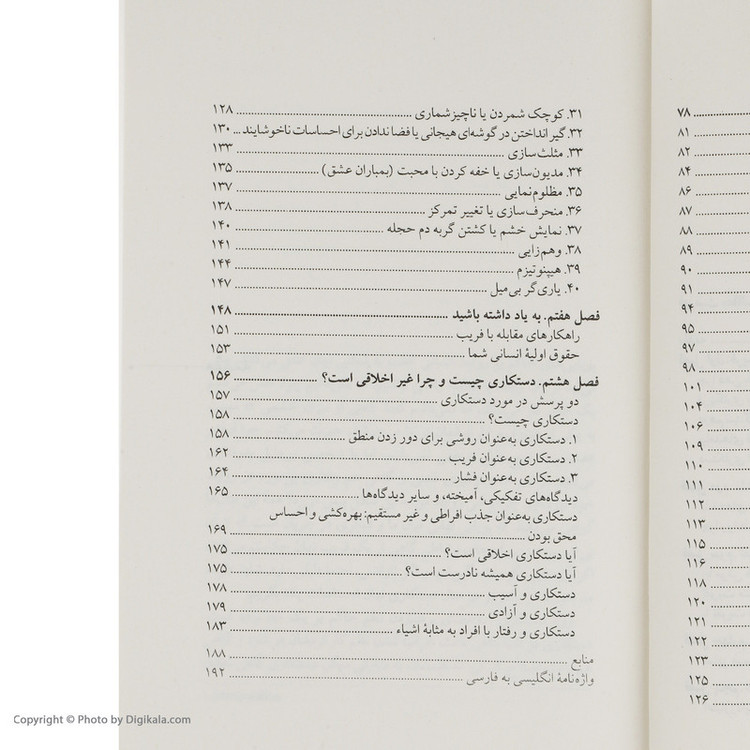 ۳۱. کوچک شمردن یا ناچیزشماری ۱۲۸
۳۲. گیر انداختن در گوشه‌ای هیجانی یا فضا ندادن برای احساسات ناخوشایند ۱۳۰
۳۳. مثلث‌سازی ۱۳۳
۳۴. مدیون‌سازی یا خفه کردن با محبت (بمباران عشق) ۱۳۵
۳۵. مظلوم‌نمایی ۱۳۷
۳۶. منحرف‌سازی یا تغییر تمرکز ۱۳۸
۳۷. نمایش خشم یا کشتن گربه دم حجله ۱۴۰
۳۸. وهم‌زایی ۱۴۱
۳۹. هیپنوتیزم ۱۴۴
۴۰. یاری‌گر بی‌میل ۱۴۷
فصل هفتم. به یاد داشته باشید ۱۴۸
راهکارهای مقابله با فریب ۱۵۱
حقوق اولیهٔ انسانی شما ۱۵۳
فصل هشتم. دستکاری چیست و چرا غیر اخلاقی است؟ ۱۵۶
دو پرسش در مورد دستکاری ۱۵۷
دستکاری چیست؟ ۱۵۸
۱. دستکاری به‌عنوان روشی برای دور زدن منطق ۱۵۸
۲. دستکاری به‌عنوان فریب ۱۶۲
۳. دستکاری به‌عنوان فشار ۱۶۴
دیدگاه‌های تفکیکی، آمیخته، و سایر دیدگاه‌ها ۱۶۵
دستکاری به‌عنوان جذب افراطی و غیر مستقیم: بهره‌کشی و احساس
محق بودن ۱۶۹
آیا دستکاری اخلاقی است؟ ۱۷۵
آیا دستکاری همیشه نادرست است؟ ۱۷۵
دستکاری و آسیب ۱۷۸
دستکاری و آزادی ۱۷۹
دستکاری و رفتار با افراد به مثابهٔ اشیاء ۱۸۳
منابع ۱۸۸
واژه‌نامهٔ انگلیسی به فارسی ۱۹۲
۷۸
۸۱
۸۲
۸۴
۸۶
۸۷
۸۸
۸۹
۹۰
۹۱
۹۴
۹۵
۹۷
۹۸
۱۰۱
۱۰۴
۱۰۶
۱۰۹
۱۱۰
۱۱۱
۱۱۲
۱۱۳
۱۱۵
۱۱۶
۱۱۸
۱۲۰
۱۲۱
۱۲۲
۱۲۳
۱۲۵
۱۲۶
Copyright © Photo by Digikala.com